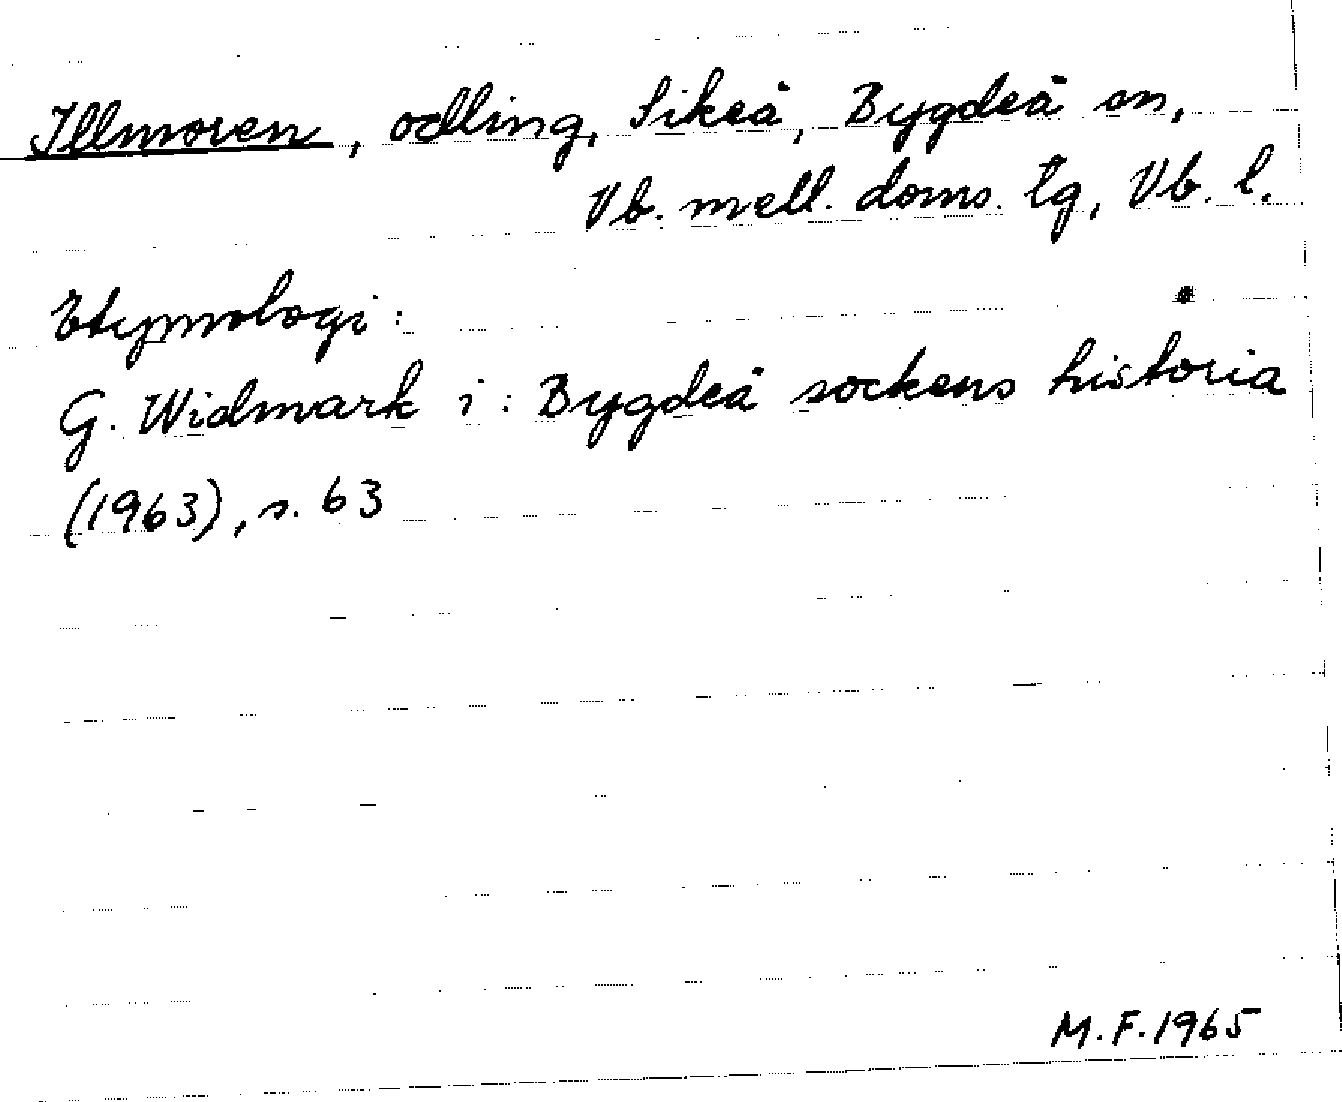 Illmoren, odling, Sikeå, Bygdeå sn,
Vb. mell. doms. tg, Vb. l.
Etymologi:
G. Widmark i: Bygdeå sockens historia
(1963), s. 63
M.F.1965